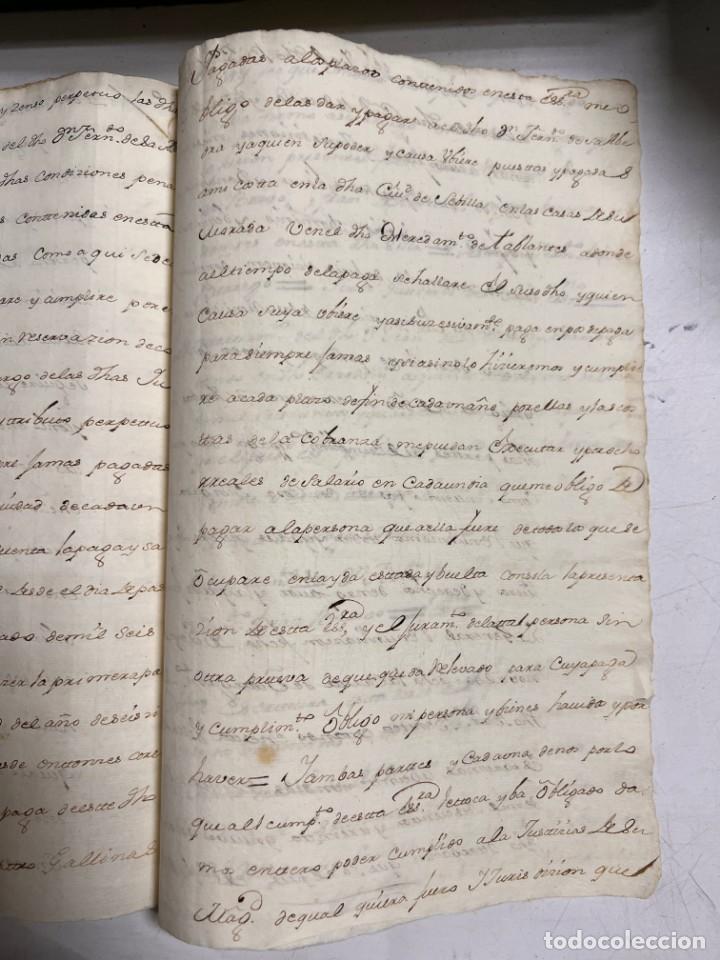 y zenso perpetuo las dhas
del dho Dn Ferndo de Saa
dhas condiziones pena
s contenidas en esta
das Como aqui se de
are y cumplire pere
in reservazion de co
argo de las dhas
y tributo perpetuo
pre Jamas pagadas
ciudad de cada un
quenta la paga y sa
desde el dia de pas
ado de mil seis
zer la primera pa
d del año de seis zi
sde entonzes corr
paga de este dho
Gallinas
Pagadas a los plazos contenidos en esta Essra me o
bligo de las dar y pagar a el dho Dn Ferndo de Saabe
dra y a quien su poder y causa Ubiere puestas y pagadas
a mi costa en la dha Ciud de Sebilla en las casas de su
Morada U en el dho Heredamto de tablantes a donde
a el tiempo de la paga se hallare El susodho y quien
Causa suya Ubiere y asi suzesivamte paga en pos de paga
para siempre Jamas y si asi no lo hizieremos y cumplie
re a cada plazo de fin de cada un año por ellas y las cos
tas de la Cobranza me puedan Executar y por ocho
rreales de Salario en Cada un dia que me obligo de
pagar a la persona que a ello fuere de todo lo que se
Ocupare en la yda estada y buelta con sola la presenta
zion de esta Essra y el juramto de la tal persona sin
otra prueva de que queda Relevado para Cuya paga
y Cumplimto Obligo mi persona y bienes havidos y por
haver = Y ambas partes y Cada una de nos por lo
que a el cumpto de esta Essra le toca y ba Obligado da
mos entero poder cumplido a la Justicias de Su
Magd de qual quiera fuero Y Jurisdizion que
todocoleccion
todocoleccion.net